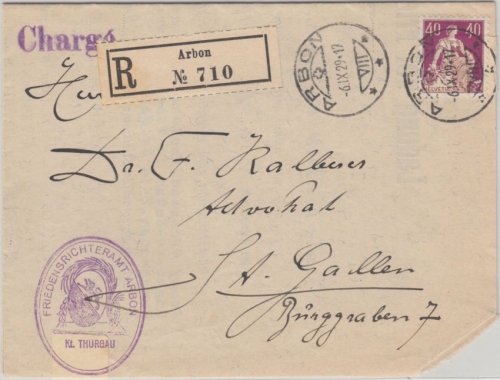 Chargé
Arbon
R № 710
ARBON
-6.IX.29-17
VIII
40 40
HELVETIA
ARBON
-6.IX.29-17
Herrn
Dr. F. Kalberer
Advokat
St. Gallen
Burggraben 7
FRIEDENSRICHTERAMT ARBON
Kt. THURGAU